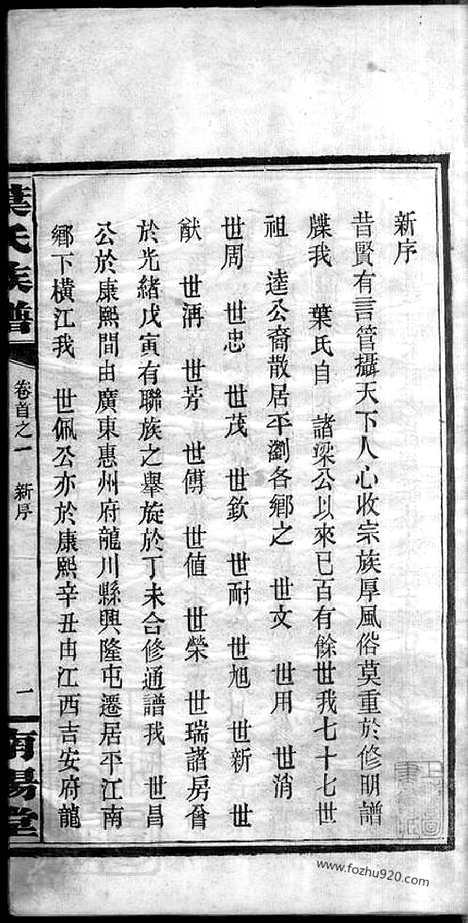 新序
昔賢有言管攝天下人心收宗族厚風俗莫重於修明譜
牒我 葉氏自 諸梁公以來已百有餘世我七十七世
祖 逵公裔散居平瀏各鄉之 世文 世用 世消
世周 世忠 世茂 世欽 世耐 世旭 世新 世
猷 世洅 世芳 世傅 世值 世榮 世瑞諸房會
於光緒戊寅有聯族之舉旋於丁未合修通譜我 世昌
公於康熙間由廣東惠州府龍川縣興隆屯遷居平江南
鄉下橫江我 世佩公亦於康熙辛丑由江西吉安府龍
葉氏族譜 卷首之一 新序 二 南陽堂
www.fozhu920.com